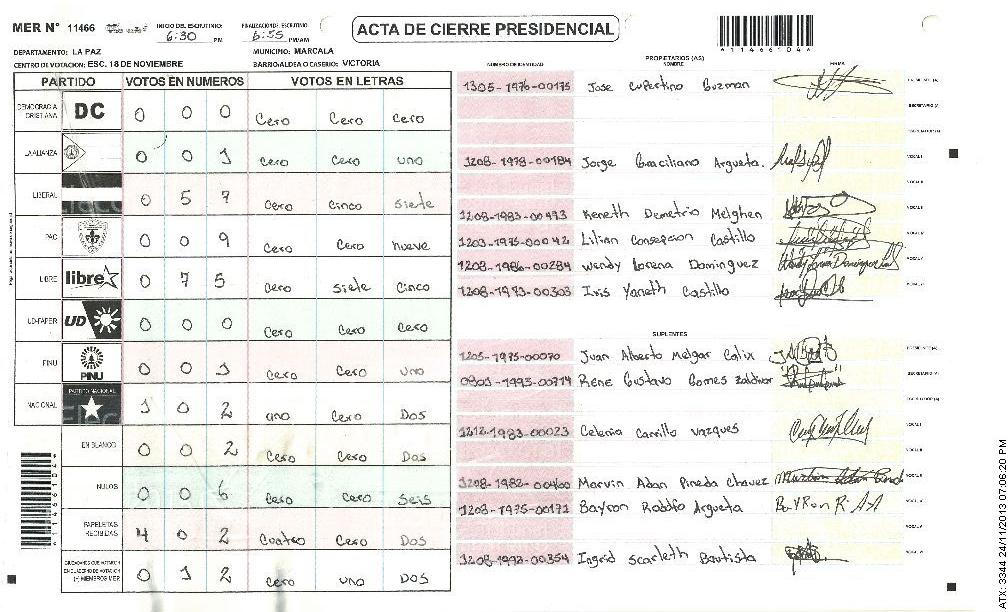 MER N° 11466
INICIO DEL ESCRUTINIO:
6:30 PM
FINALIZACION DEL ESCRUTINIO:
6:55 PM/AM
ACTA DE CIERRE PRESIDENCIAL
DEPARTAMENTO: LA PAZ
MUNICIPIO: MARCALA
CENTRO DE VOTACION: ESC. 18 DE NOVIEMBRE
BARRIO/ALDEA O CASERIO: VICTORIA
PARTIDO VOTOS EN NUMEROS VOTOS EN LETRAS
DEMOCRACIA CRISTIANA DC 0 0 0 Cero Cero Cero
LA ALIANZA 0 0 1 Cero Cero uno
LIBERAL 0 5 7 Cero Cinco Siete
PAC 0 0 9 Cero Cero nueve
LIBRE libre 0 7 5 Cero Siete Cinco
UD-FAPER UD 0 0 0 Cero Cero Cero
PINU PINU 0 0 1 Cero Cero uno
NACIONAL PARTIDO NACIONAL 1 0 2 uno Cero Dos
EN BLANCO 0 0 2 Cero Cero Dos
NULOS 0 0 6 Cero Cero Seis
PAPELETAS RECIBIDAS 4 0 2 Cuatro Cero Dos
0 1 2 Cero uno Dos
NUMERO DE IDENTIDAD
PROPIETARIOS (AS)
NOMBRE
FIRMA
1305-1976-00175 Jose Cupertino Guzman
1208-1978-00184 Jorge Graciliano Argueta.
1208-1983-00493 Keneth Demetrio Melghen
1203-1975-00042 Lilian Consepcion Castillo
1208-1986-00284 Wendy Lorena Dominguez
1208-1973-00303 Iris Yaneth Castillo
SUPLENTES
1205-1975-00070 Juan Alberto Melgar Calix
0801-1993-00714 Rene Gustavo Gomes Zaldivar
1212-1983-00023 Celenia Carrillo Vazques
1208-1982-00400 Marvin Adan Pineda Chavez
1208-1975-00171 Bayron Rodolfo Argueta
1208-1992-00354 Ingrid Scarleth Bautista
ATX: 3344 24/11/2013 07:06:20 PM